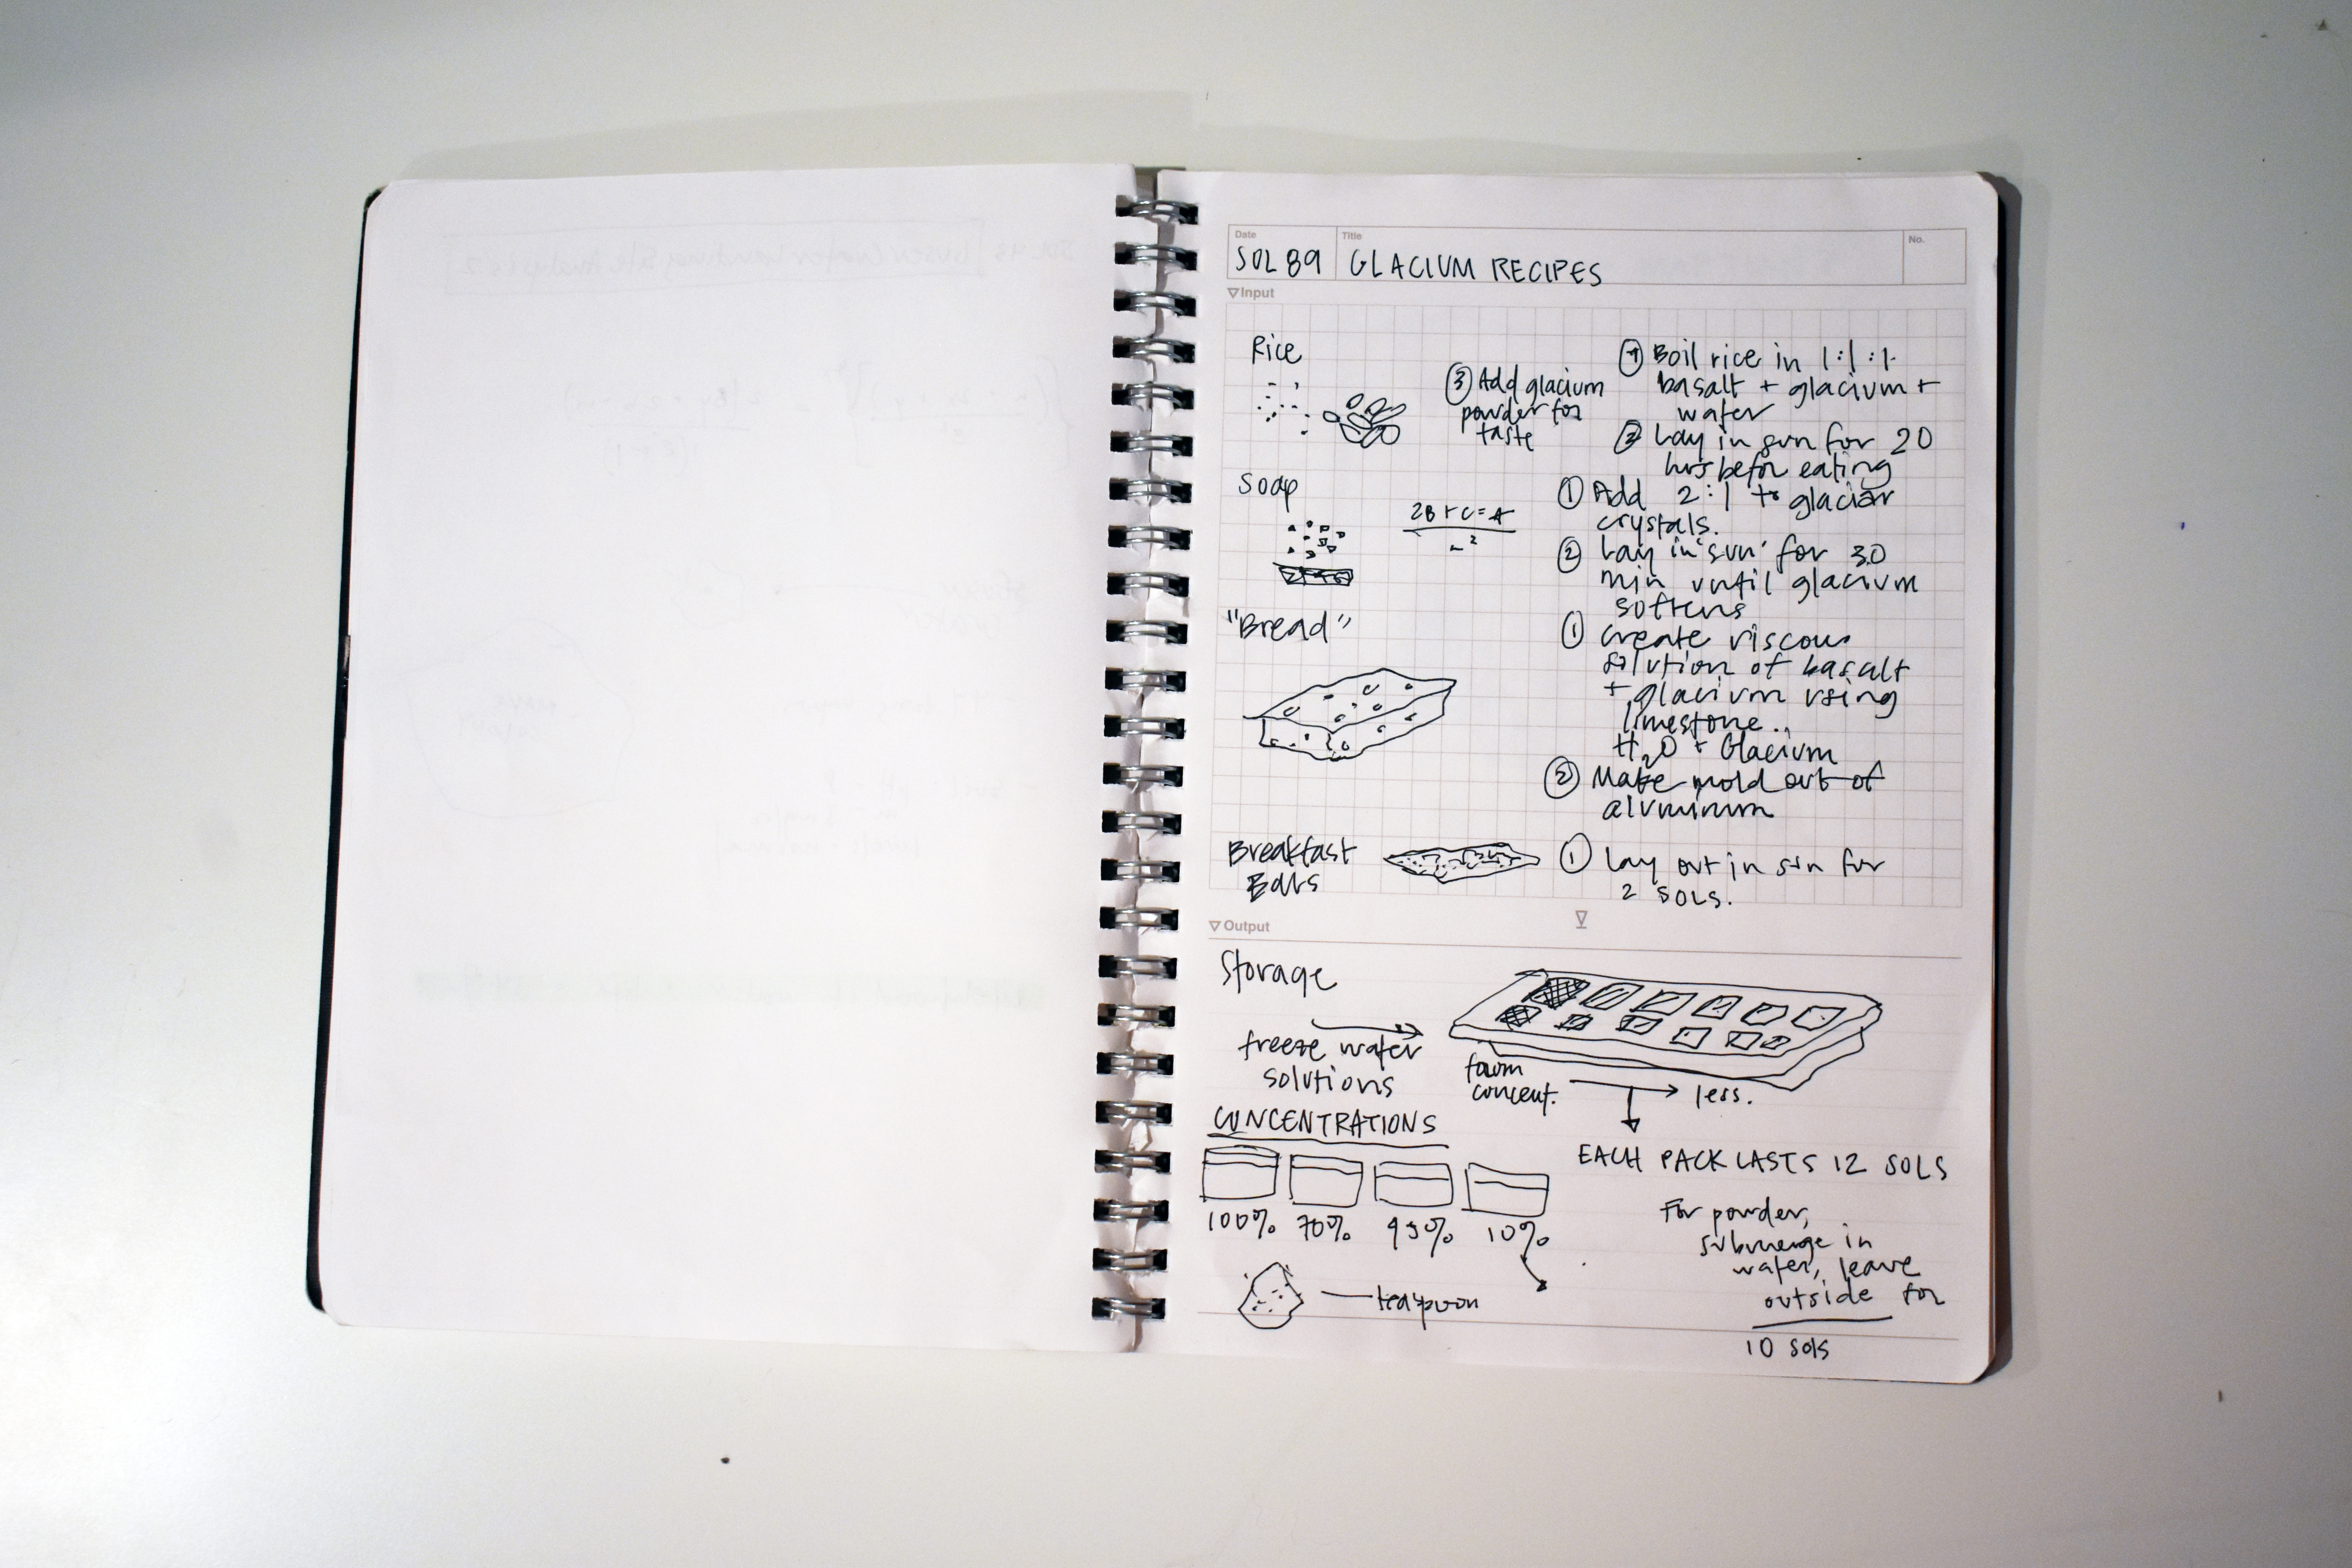 Date
Title
No.
SOL 89
GLACIUM RECIPES
Input
Rice
③ Add glacium
powder for
taste
① Boil rice in 1:1:1
basalt + glacium +
water
② Lay in sun for 20
hrs befor eating
Soap
2B + C = A
① Add 2:1 to glaciar
crystals.
② Lay in 'sun' for 30
min until glacium
softens
"Bread"
① Create viscous
solution of basalt
+ glacium using
limestone..
H₂O + Glacium
② Make mold out of
aluminum
Breakfast
Bars
① lay out in sun for
2 SOLS.
Output
Storage
freeze water
solutions
from
concent.
less.
CONCENTRATIONS
EACH PACK LASTS 12 SOLS
100% 70% 45% 10%
For powder,
submerge in
water, leave
outside for
10 sols
teaspoon